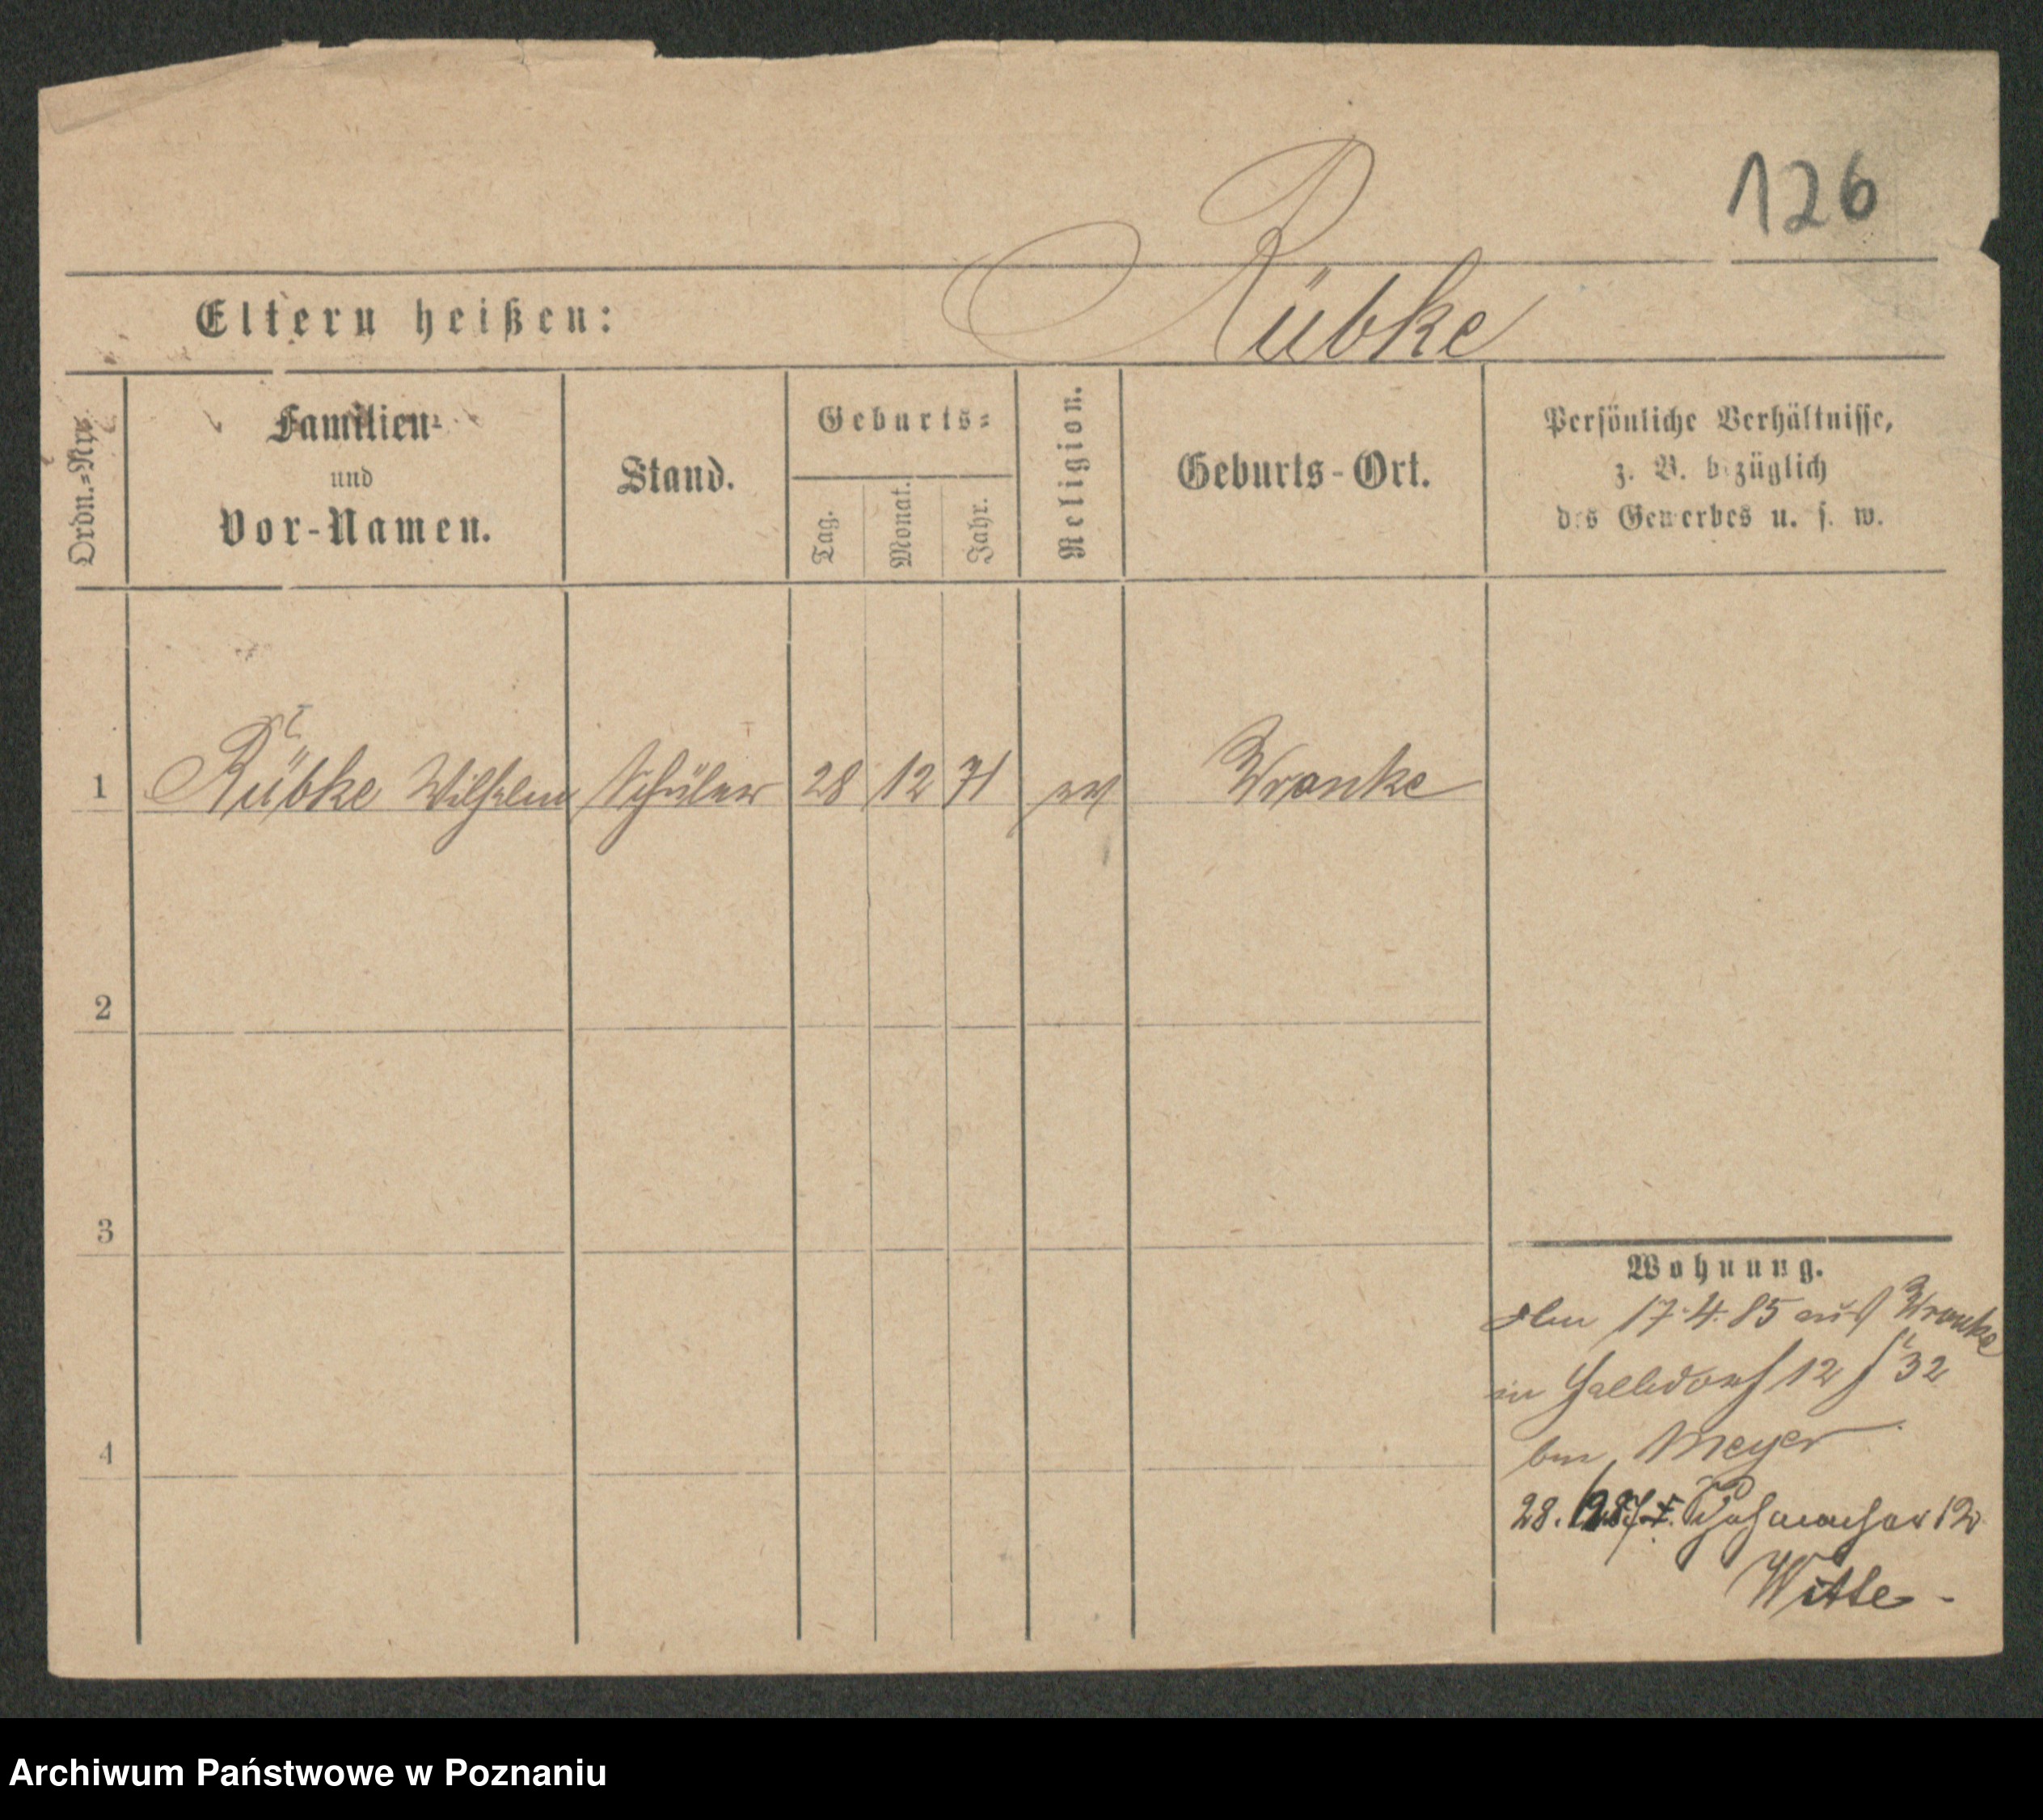 126
Rübke
Eltern heißen:
Ordn.=Nr.
Familien=
und
Vor-Namen.
Stand.
Geburts=
Tag.
Monat.
Jahr.
Religion.
Geburts-Ort.
Persönliche Verhältnisse,
z. B. bezüglich
des Gewerbes u. s. w.
1 Rübke Wilhelm Schüler 28 12 71 ev Wronke
2
3
4
Wohnung.
17.4.85 aus Wronke
in Halbdorf 12 32
bei Meyer
28. 12
Witte
Archiwum Państwowe w Poznaniu